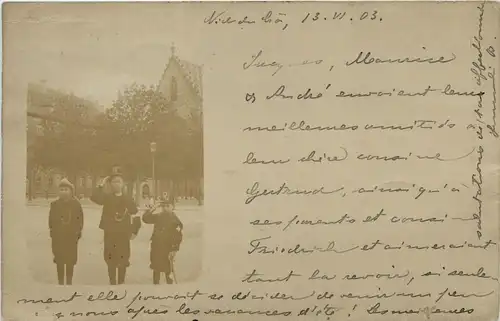 13. VI. 03.
Jacques, Maurice
& André envoient leurs
meillemes amitiés à
leur chère cousine
Gertrud, ainsi qu'à
ses parents et cousin
Friedrich et aimeraient
tant la revoir, si seule
ment elle pouvait se décider de venir un peu
à nous après les vacances d'été! Les meillemes
salutations de